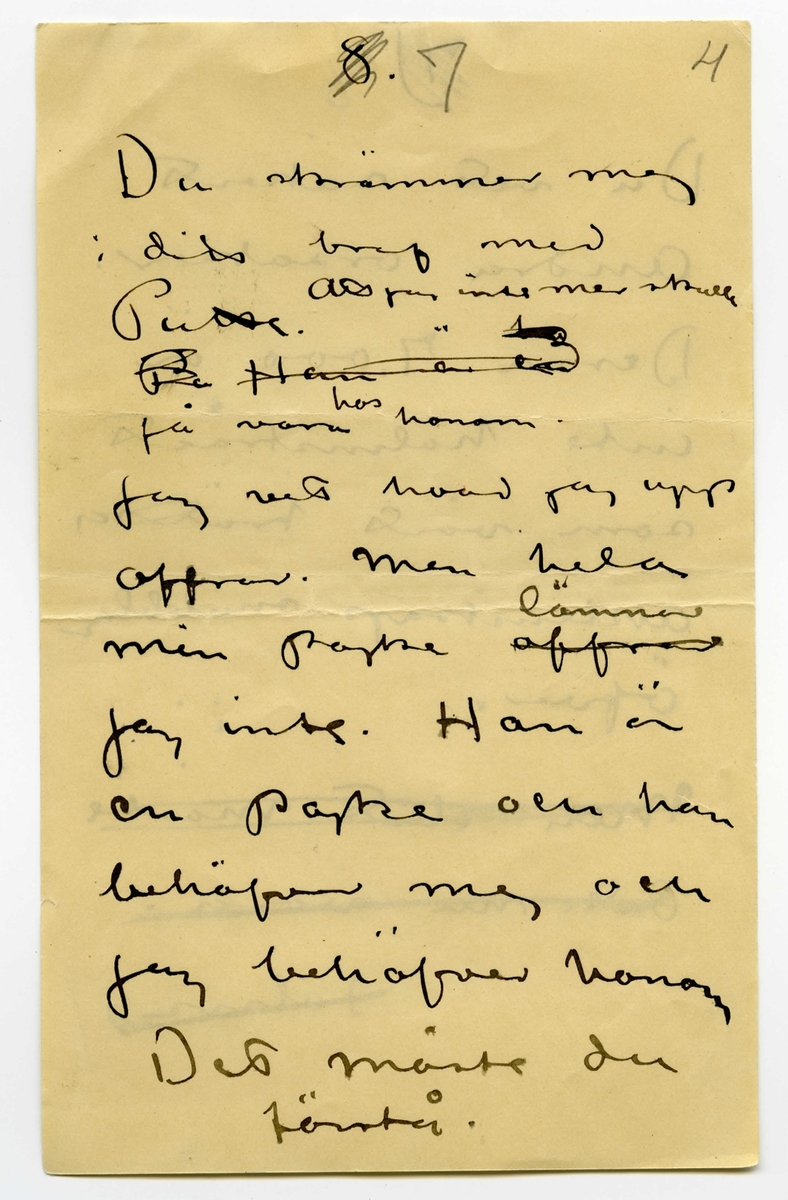 8. 7 4
Du skrämmer mej
i dits bref med
Putte. Att jag inte mer skulle
Han är en
få vara hos honom.
Jag vet hvad jag upp
offrar. Men hela
lämnar
min pojke offrar
jag inte. Han är
en pojke och han
behöfver mej och
jag behöfver honom
Det måste du
förstå.